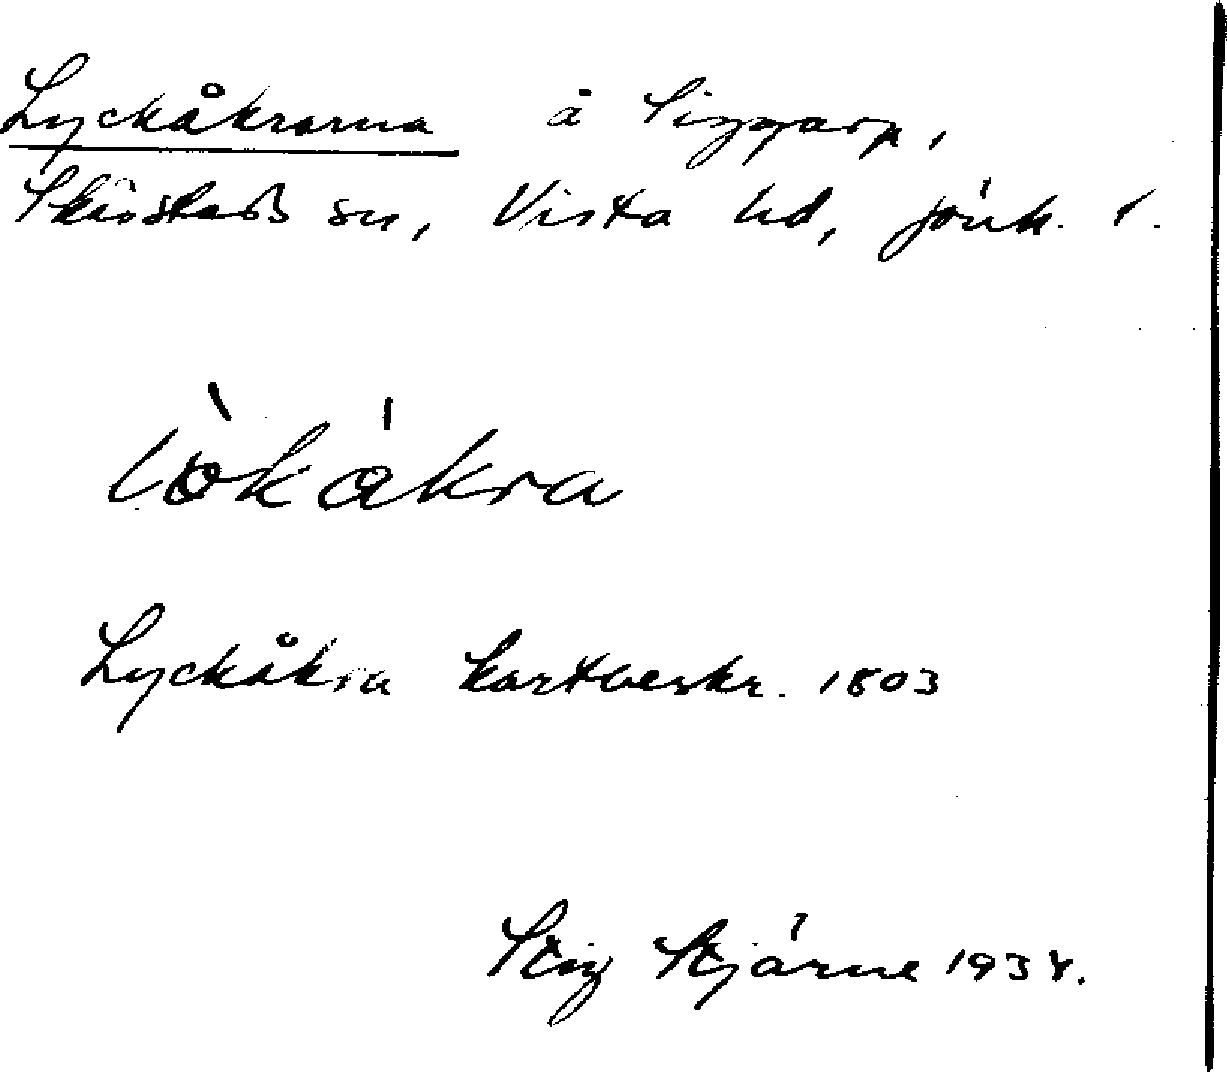 Lyckåkrarna å Siggarp,
Skärstads sn, Vista hd, Jönk. l.
lök åkra
Lyckåkra kartbeskr. 1803
Stig Stjärne 1934.